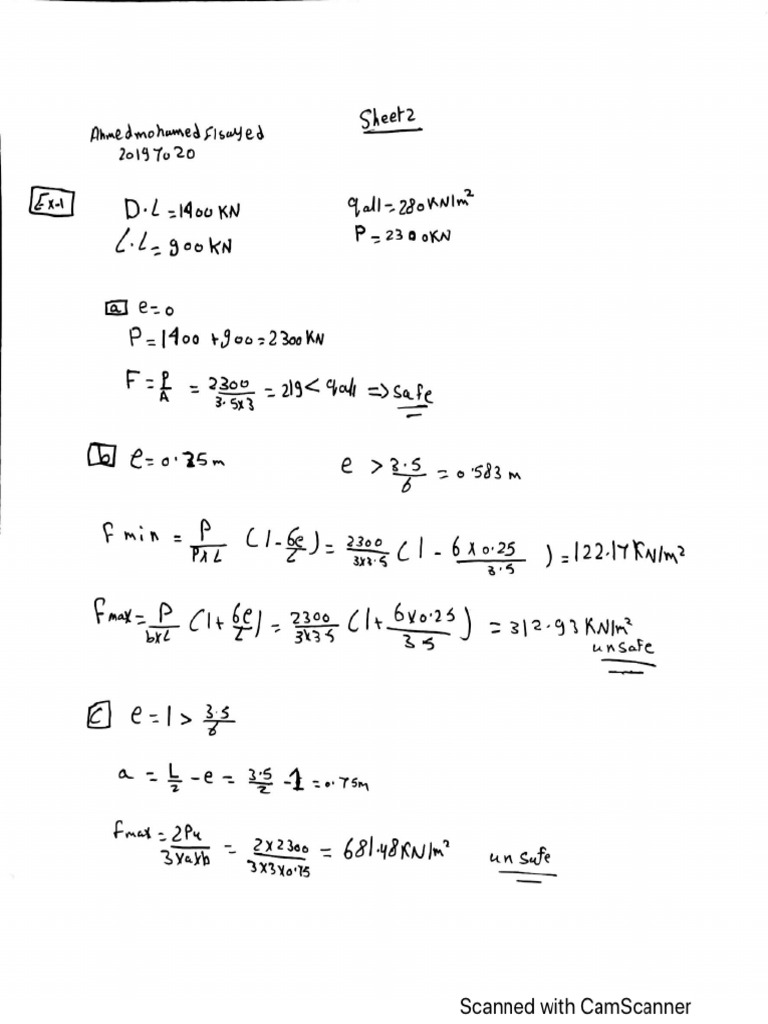 Sheet2
Ahmedmohamed Elsayed
20197020
Ex-1
D.L = 1400 KN
qall = 280 KN/m²
L.L = 900 KN
P = 2300KN
a e = 0
P = 1400 + 900 = 2300 KN
F = P/A = 2300/3.5x3 = 219 < qall => safe
b e = 0.25m e > 3.5/6 = 0.583 m
f min = P/PxL (1 - 6e/L) = 2300/3x3.5 (1 - 6x0.25/3.5) = 122.17 KN/m²
fmax = P/bxL (1 + 6e/L) = 2300/3x3.5 (1 + 6x0.25/3.5) = 312.93 KN/m²
unsafe
c e = 1 > 3.5/6
a = L/2 - e = 3.5/2 - 1 = 0.75m
fmax = 2Pu/3xaxb = 2x2300/3x3x0.75 = 681.48KN/m² unsafe
Scanned with CamScanner